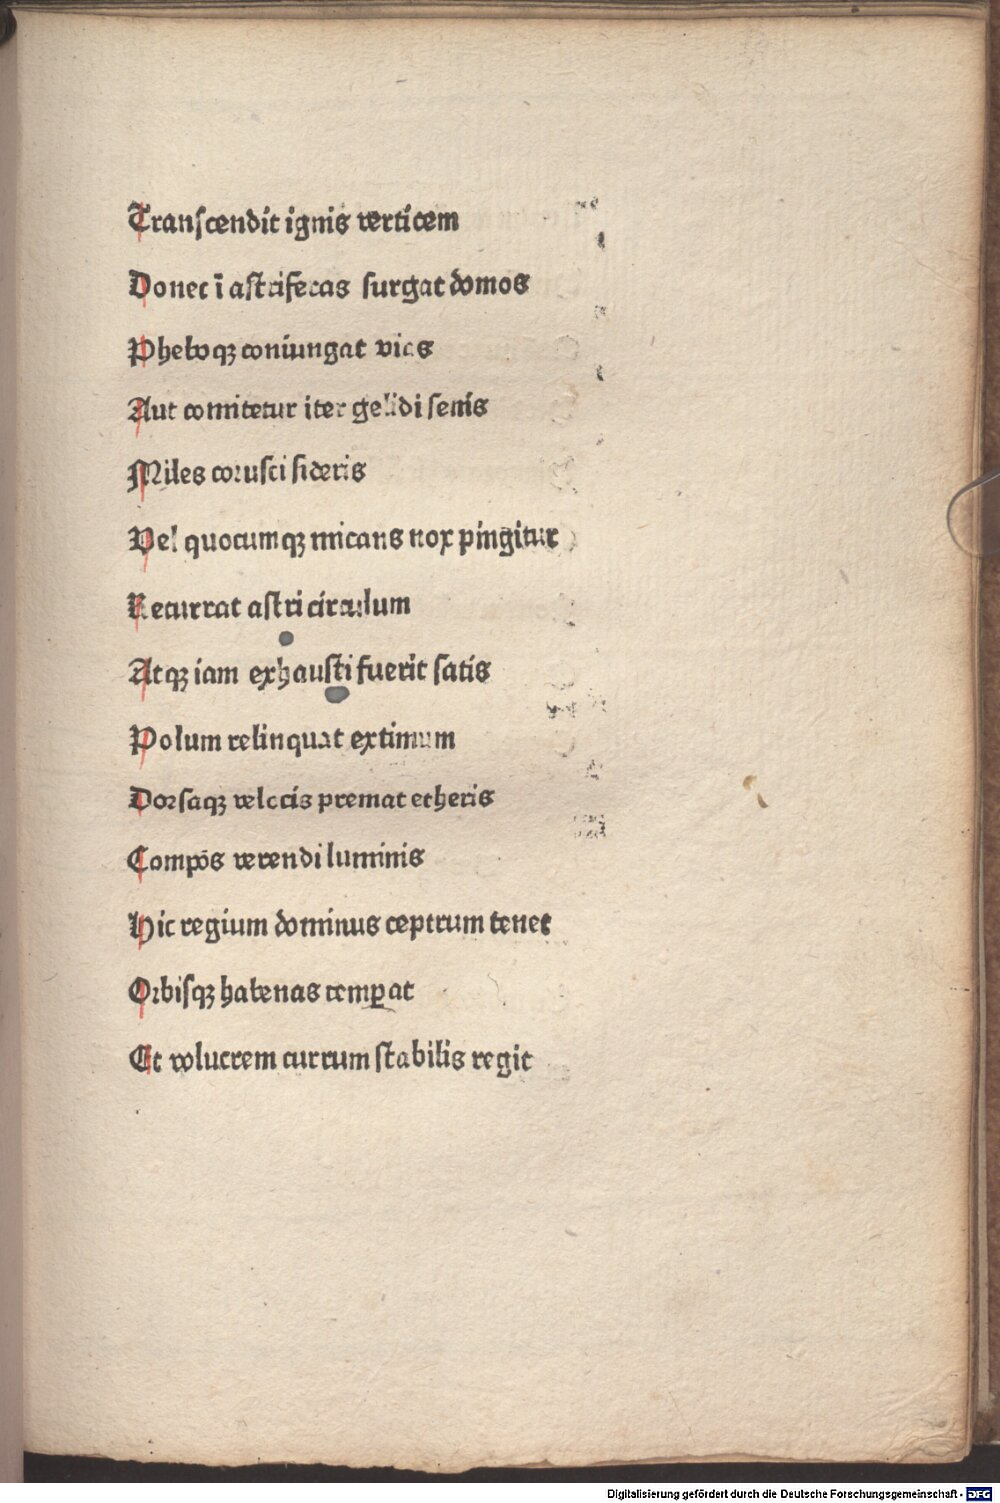 Tranſcendit ignis verticem
Donec ī aſtriferas ſurgat domos
Pheboqꝫ coniungat vias
Aut comitetur iter gelidi ſenis
Miles coꝛuſci ſideris
Vel quocumqꝫ micans nox pingitur
Recurrat aſtri circulum
Atqꝫ iam exhauſti fuerit ſatis
Polum relinquat extimum
Doꝛſaqꝫ velocis premat etheris
Compōs verendi luminis
Hic regium dominus ceptrum tenet
Oꝛbiſqꝫ habenas temꝑat
Et volucrem currum ſtabilis regit
Digitalisierung gefördert durch die Deutsche Forschungsgemeinschaft - DFG